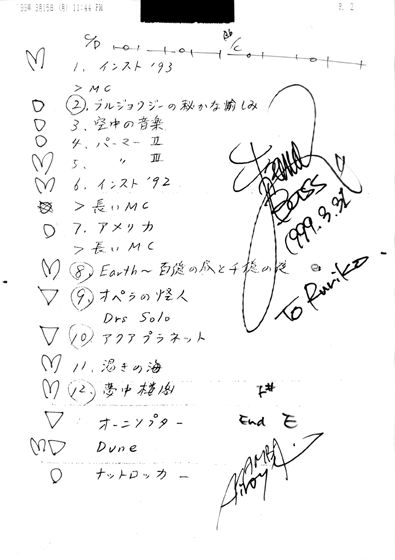 '99年 3月5日 (金) 11:44 PM P. 2
C/D
Ab/C
1. インスト '93
> MC
②. ブルジョワジーの秘かな愉しみ
3. 空中の音楽
4. パーマー Ⅱ
5. 〃 Ⅲ
6. インスト '92
> 長いMC
7. アメリカ
> 長いMC
⑧. Earth～百億の昼と千億の夜
⑨. オペラの怪人
Drs Solo
⑩. アクアプラネット
11. 渇きの海
⑫. 夢中楼閣 F#
オーニソプター End E
Dune
ナットロッカー
Bass
1999.3.31
To Ruriko